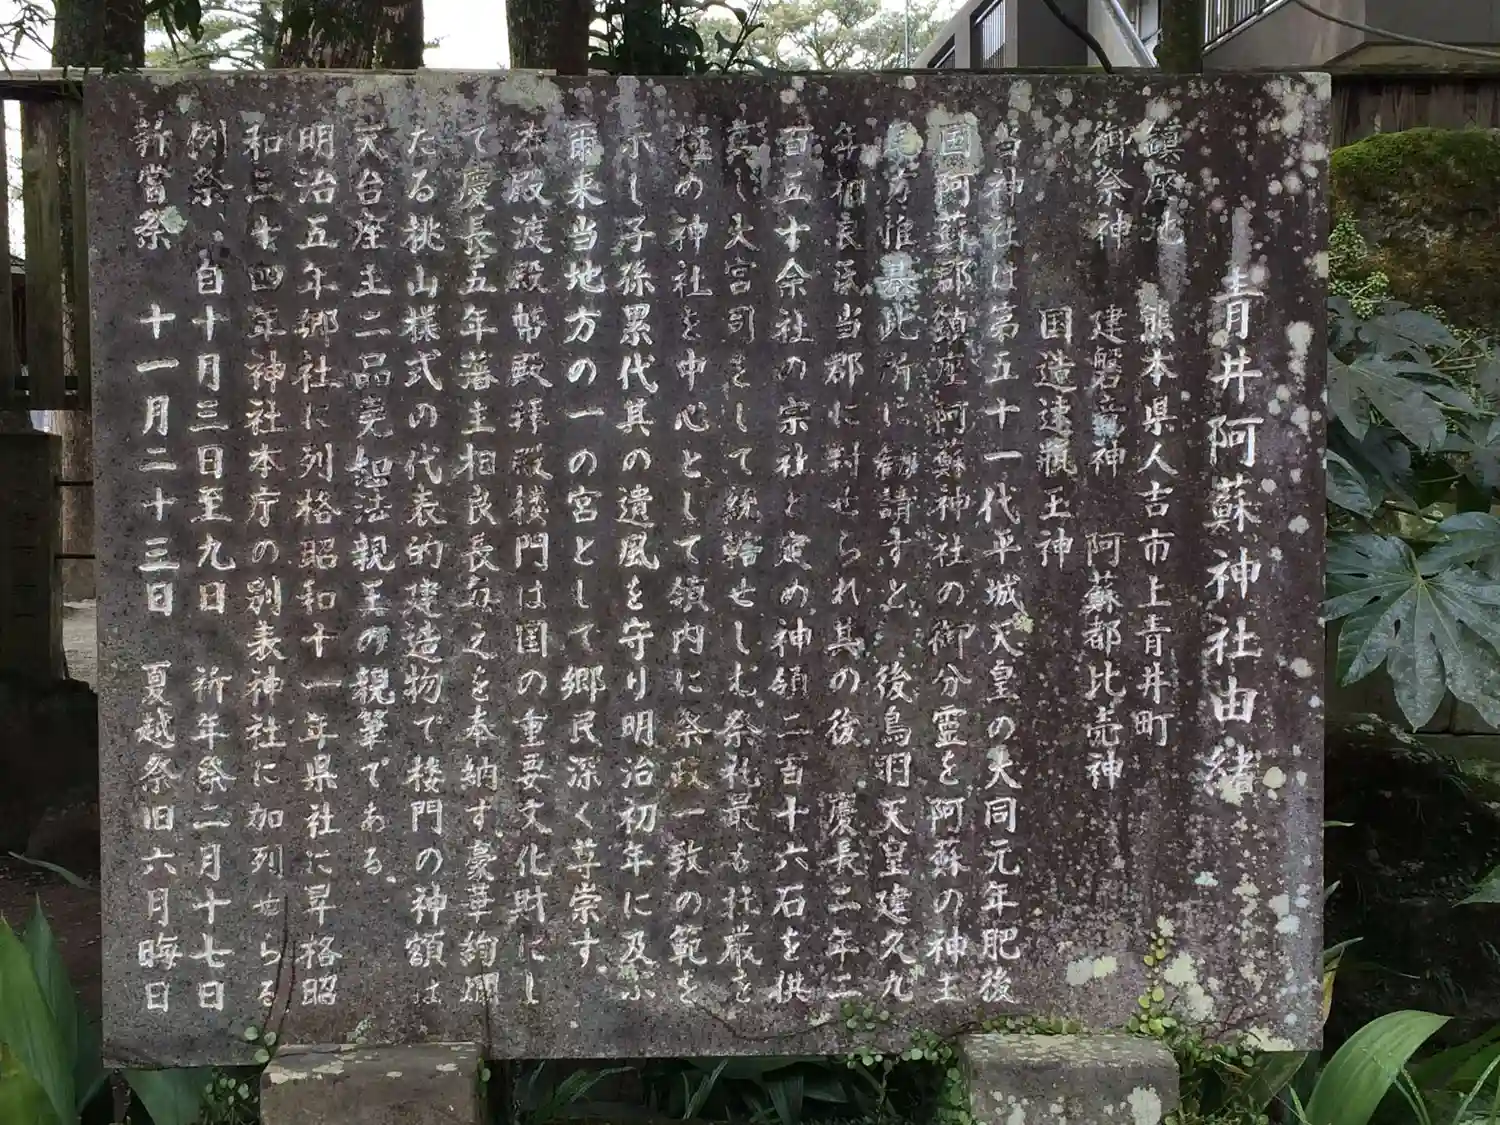 青井阿蘇神社由緒
鎮座地 熊本県人吉市上青井町
御祭神 建磐龍神 阿蘇都比売神
国造速瓶玉神
当神社は第五十一代平城天皇の大同元年肥後
国阿蘇郡鎮座阿蘇神社の御分霊を阿蘇の神主
尾方惟基此所に勧請すと、後鳥羽天皇建久九
年相良氏当郡に封せられ其の後 慶長二年二
百五十余社の宗社と定め神領二百十六石を供
高し大宮司をして統轄せしむ祭礼最も荘厳を
極め神社を中心として領内に祭政一致の範を
示し子孫累代其の遺風を守り明治初年に及ぶ
爾来当地方の一の宮として郷民深く尊崇す
本殿渡殿幣殿拝殿楼門は国の重要文化財にし
て慶長五年藩主相良長每之を奉納す豪華絢爛
たる桃山様式の代表的建造物で楼門の神額は
天台座主二品尭恕法親王の親筆である
明治五年郷社に列格昭和十一年県社に昇格昭
和三十四年神社本庁の別表神社に加列せらる
例祭、自十月三日至九日 祈年祭二月十七日
新嘗祭 十一月二十三日 夏越祭旧六月晦日